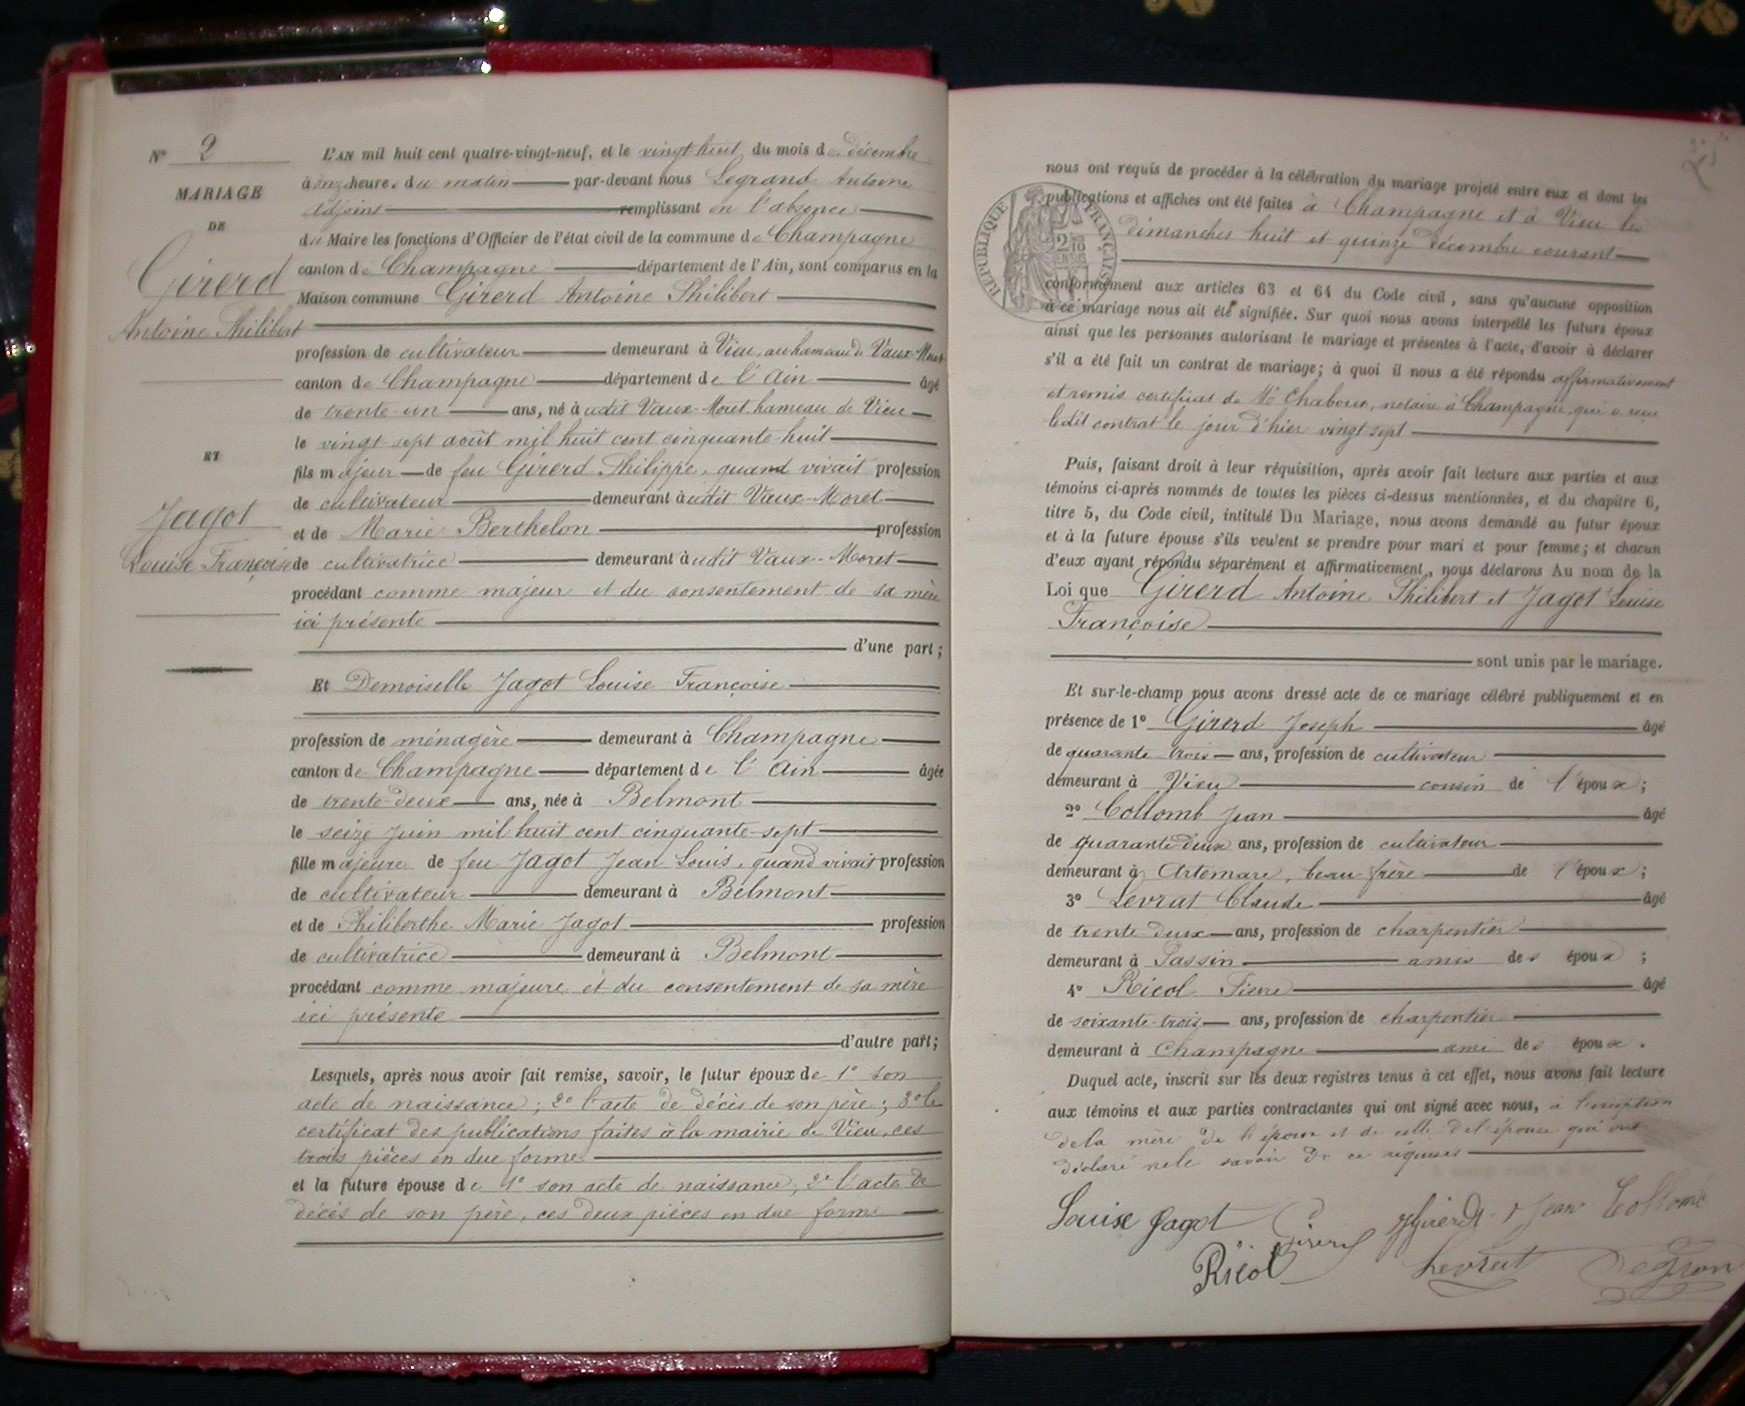 N° 2
MARIAGE
DE
Girerd
Antoine Philibert
ET
Jagot
Louise Françoise
L'AN mil huit cent quatre-vingt-neuf, et le vingt huit du mois de décembre
à onze heures du matin par-devant nous Legrand Antoine
adjoint remplissant en l'absence
du Maire les fonctions d'Officier de l'état civil de la commune de Champagne
canton de Champagne département de l'Ain, sont comparus en la
Maison commune Girerd Antoine Philibert
profession de cultivateur demeurant à Vieu, au hameau de Vaux-Moret
canton de Champagne département de l'Ain âgé
de trente-un ans, né à udit Vaux-Moret hameau de Vieu
le vingt sept août mil huit cent cinquante-huit
fils majeur de feu Girerd Philippe, quand vivait profession
de cultivateur demeurant à udit Vaux-Moret
et de Marie Berthelon profession
de cultivatrice demeurant à udit Vaux-Moret
procédant comme majeur et du consentement de sa mère
ici présente
d'une part;
Et Demoiselle Jagot Louise Françoise
profession de ménagère demeurant à Champagne
canton de Champagne département de l'Ain âgée
de trente-deux ans, née à Belmont
le seize juin mil huit cent cinquante-sept
fille majeure de feu Jagot Jean Louis, quand vivait profession
de cultivateur demeurant à Belmont
et de Philiberthe Marie Jagot profession
de cultivatrice demeurant à Belmont
procédant comme majeure et du consentement de sa mère
ici présente
d'autre part;
Lesquels, après nous avoir fait remise, savoir, le futur époux de 1° son
acte de naissance; 2° l'acte de décès de son père; 3° le
certificat des publications faites à la mairie de Vieu, ces
trois pièces en due forme
et la future épouse de 1° son acte de naissance, 2° l'acte de
décès de son père, ces deux pièces en due forme
nous ont requis de procéder à la célébration du mariage projeté entre eux et dont les
publications et affiches ont été faites à Champagne et à Vieu les
dimanches huit et quinze décembre courant
RÉPUBLIQUE FRANÇAISE
conformément aux articles 63 et 64 du Code civil, sans qu'aucune opposition
à ce mariage nous ait été signifiée. Sur quoi nous avons interpellé les futurs époux
ainsi que les personnes autorisant le mariage et présentes à l'acte, d'avoir à déclarer
s'il a été fait un contrat de mariage; à quoi il nous a été répondu affirmativement
et remis certificat de Me Chaboux, notaire à Champagne, qui a reçu
ledit contrat le jour d'hier vingt sept
Puis, faisant droit à leur réquisition, après avoir fait lecture aux parties et aux
témoins ci-après nommés de toutes les pièces ci-dessus mentionnées, et du chapitre 6,
titre 5, du Code civil, intitulé Du Mariage, nous avons demandé au futur époux
et à la future épouse s'ils veulent se prendre pour mari et pour femme; et chacun
d'eux ayant répondu séparément et affirmativement, nous déclarons Au nom de la
Loi que Girerd Antoine Philibert et Jagot Louise
Françoise
sont unis par le mariage.
Et sur-le-champ nous avons dressé acte de ce mariage célébré publiquement et en
présence de 1° Girerd Joseph âgé
de quarante trois ans, profession de cultivateur
demeurant à Vieu cousin de l'époux;
2° Collomb Jean âgé
de quarante deux ans, profession de cultivateur
demeurant à Artemare, beau frère de l'époux;
3° Levrat Claude âgé
de trente deux ans, profession de charpentier
demeurant à Passin amis des époux;
4° Ricol Pierre âgé
de soixante-trois ans, profession de charpentier
demeurant à Champagne ami des époux.
Duquel acte, inscrit sur les deux registres tenus à cet effet, nous avons fait lecture
aux témoins et aux parties contractantes qui ont signé avec nous, à l'exception
de la mère de l'époux et de celle de l'épouse qui ont
déclaré ne le savoir de ce requises
Louise Jagot Girerd J Girerd Jean Collomb
Ricol Levrat Legrand